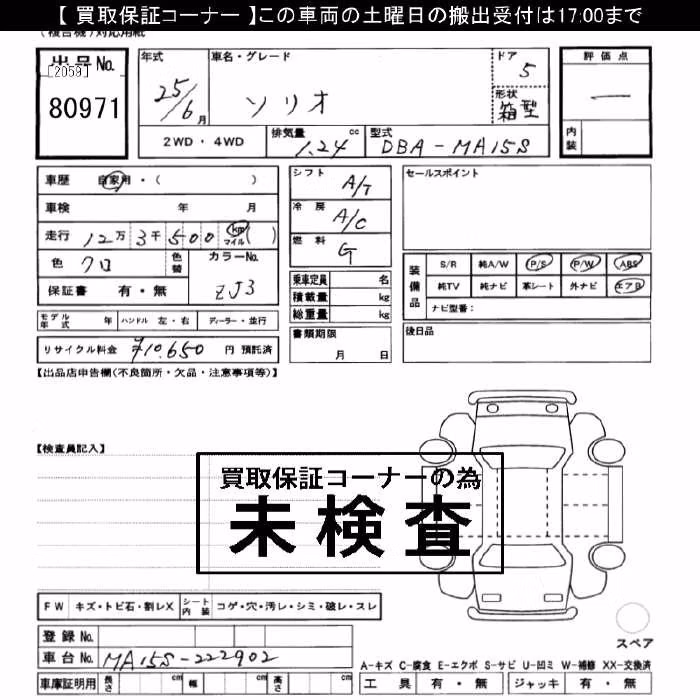 【 買取保証コーナー 】この車両の土曜日の搬出受付は17:00まで
(複合機)対応用紙
出品No.
[2059]
80971
年式
25/6月
車名・グレード
ソリオ
ドア
5
形状
箱型
評価点
—
内装
2WD・4WD
排気量
1.24 cc
型式
DBA-MA15S
車歴 自家用・( )
車検 年 月
走行 12万3千500 km マイル ( )
色 クロ
色替
カラーNo.
ZJ3
保証書 有・無
シフト A/T
冷房 A/C
燃料 G
乗車定員 名
積載量 kg
総重量 kg
セールスポイント
装備品
S/R 純A/W P/S P/W ABS
純TV 純ナビ 革シート 外ナビ エアB
ナビ型番:
モデル年式 年 ハンドル 左・右 ディーラー・並行
リサイクル料金 ¥10,650 円 預託済
書類期限
月 日
後日品
【出品店申告欄(不良箇所・欠品・注意事項等)】
【検査員記入】
買取保証コーナーの為
未検査
FW キズ・トビ石・割レX シート内装 コゲ・穴・汚レ・シミ・破レ・スレ
登録No.
車台No. MA15S-222902
車庫証明用 長さ cm 幅 cm 高さ cm
スペア
A-キズ C-腐食 E-エクボ S-サビ U-凹ミ W-補修 XX-交換済
工具 有・無 ジャッキ 有・無